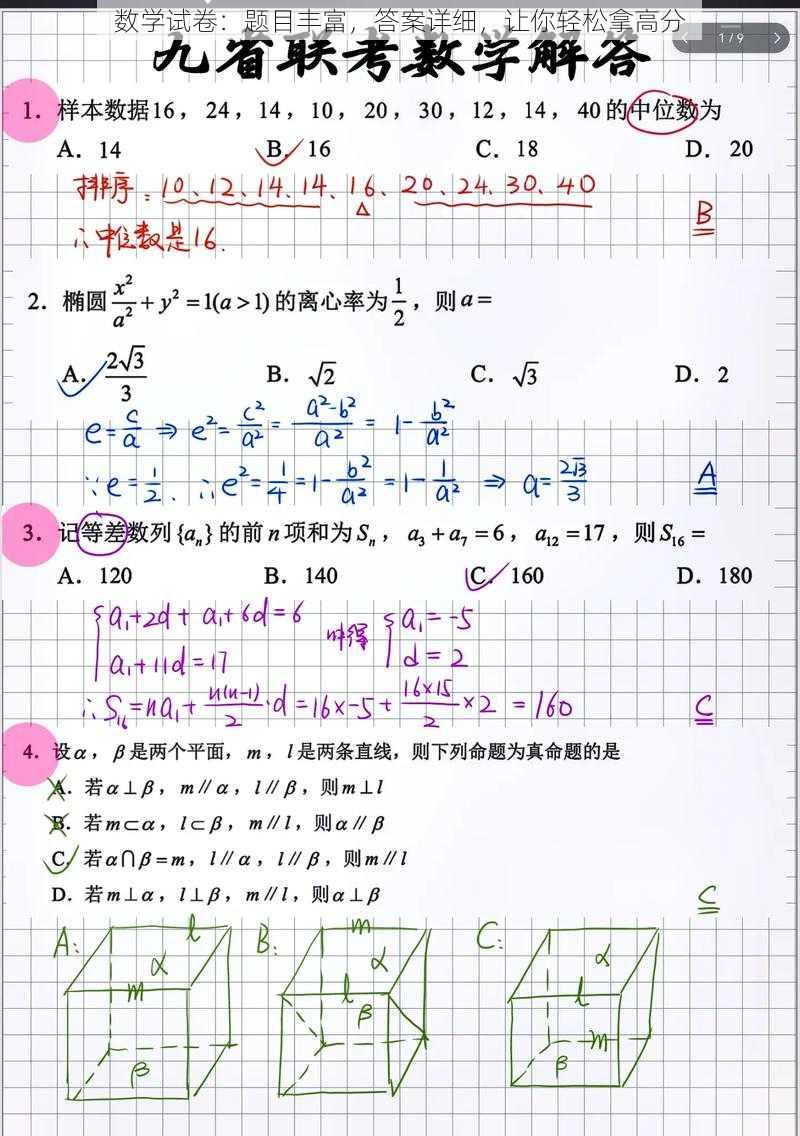 数学试卷：题目丰富，答案详细，让你轻松拿高分
九省联考数学解答
1/9
1. 样本数据16，24，14，10，20，30，12，14，40的中位数为
A. 14 B. 16 C. 18 D. 20
排序：10、12、14、14、16、20、24、30、40
∴中位数是16.
B
2. 椭圆x²/a²+y²=1(a>1)的离心率为1/2，则a=
A. 2√3/3 B. √2 C. √3 D. 2
e=c/a ⇒ e²=c²/a²=a²-b²/a²=1-b²/a²
∵e=1/2. ∴e²=1/4=1-b²/a²=1-1/a² ⇒ a=2√3/3 A
3. 记等差数列{aₙ}的前n项和为Sₙ，a₃+a₇=6，a₁₂=17，则S₁₆=
A. 120 B. 140 C. 160 D. 180
{a₁+2d+a₁+6d=6 解得 {a₁=-5
a₁+11d=17 d=2
∴S₁₆=na₁+n(n-1)/2·d=16×-5+16×15/2×2=160 C
4. 设α，β是两个平面，m，l是两条直线，则下列命题为真命题的是
A. 若α⊥β，m∥α，l∥β，则m⊥l
B. 若m⊂α，l⊂β，m∥l，则α∥β
C. 若α∩β=m，l∥α，l∥β，则m∥l
D. 若m⊥α，l⊥β，m∥l，则α⊥β
C
A: l α m β
B: m α l β
C: α l m β